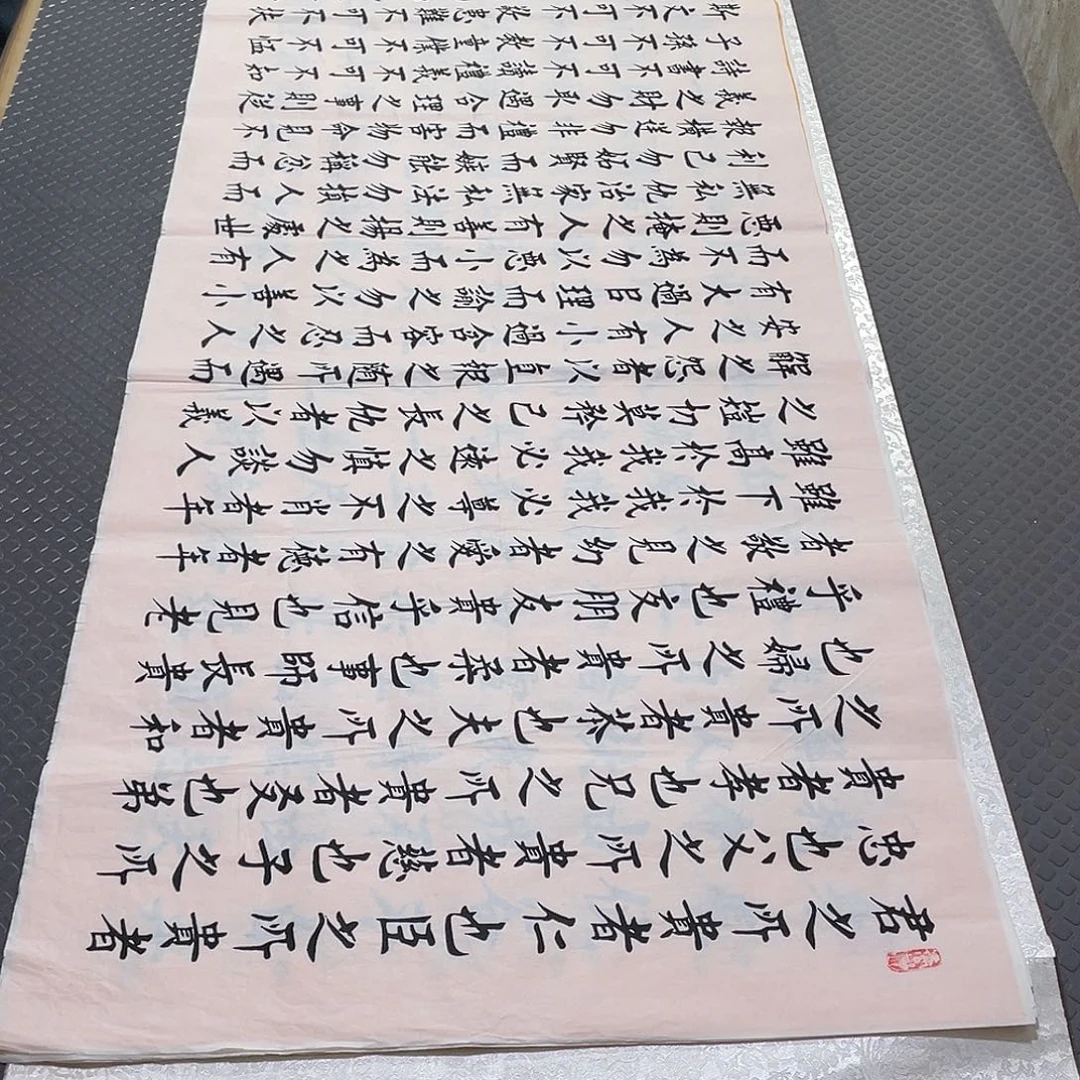 君之所貴者仁也臣之所貴者
忠也父之所貴者慈也子之所
貴者孝也兄之所貴者友也弟
之所貴者恭也夫之所貴者和
也婦之所貴者柔也事師長貴
乎禮也交朋友貴乎信也見老
者敬之見幼者愛之有德者年
雖下於我我必尊之不肖者年
雖高於我我必遠之慎勿談人
之短切莫矜己之長仇者以義
解之怨者以直報之隨所遇而
安之人有小過含容而忍之人
有大過㠯理而諭之勿以善小
而不為勿以惡小而為之人有
惡則掩之人有善則揚之處世
無私仇治家無私法勿損人而
利己勿妬賢而嫉能勿稱忿而
報橫逆勿非禮而害物命見不
義之財勿取遇合理之事則從
詩書不可不讀禮義不可不知
子孫不可不教童僕不可不恤
斯文不可不敬患難不可不扶